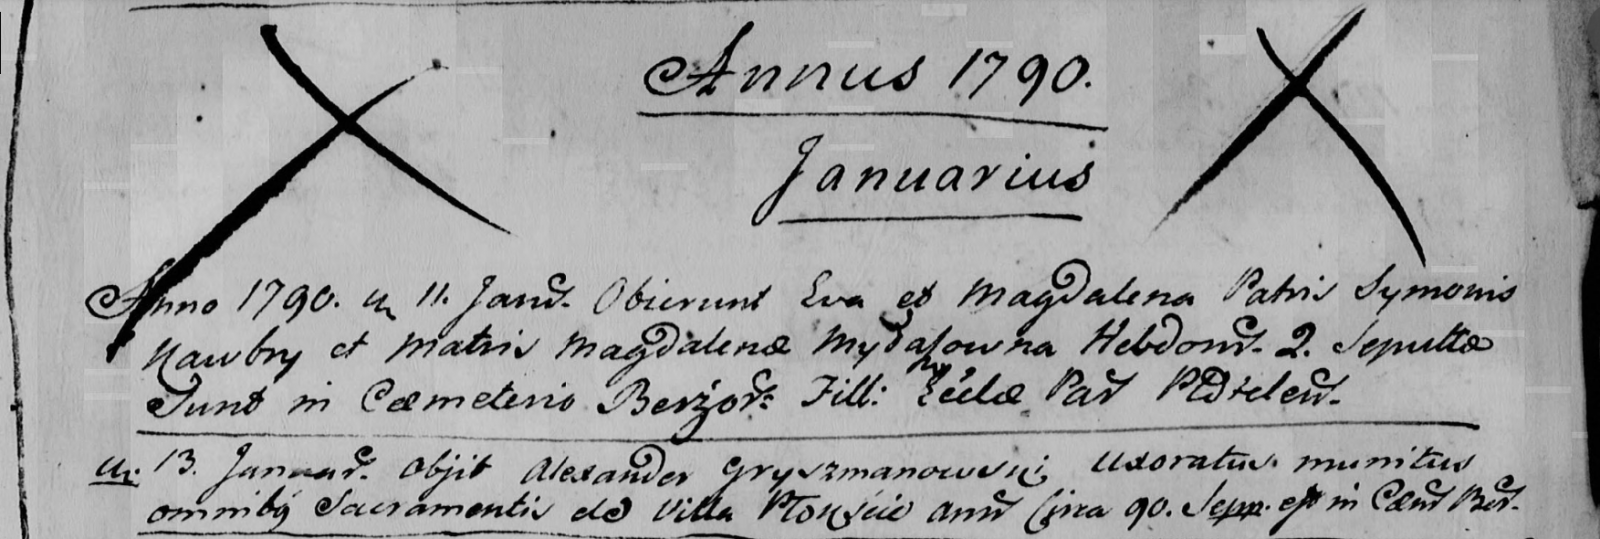 Annus 1790.
Januarius
Anno 1790. 11. Janr. Obierunt Eva et Magdalena Patris Symonis
Nawbry et Matris Magdalenæ Hebdom. 2. Sepultæ
Sunt in Cæmeterio Fill: Par
13. Januar. Objit Alexander Gryszmanowski Uxoratus munitus
omnibq Sacramentis de Villa ann Circa 90. Sepp. est in Cæm Ber.